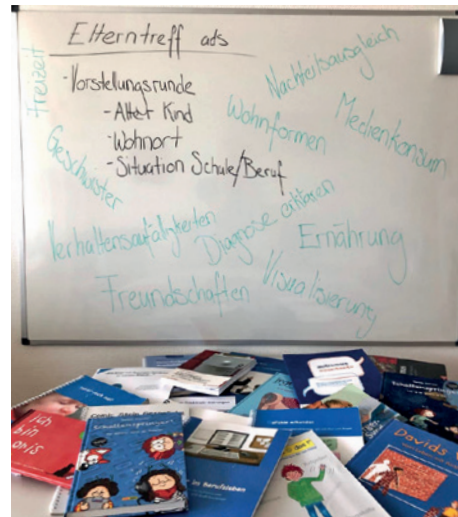 Elterntreff ads
- Vorstellungsrunde
- Alter Kind
- Wohnort
- Situation Schule/Beruf
Freizeit
Nachteilsausgleich
Wohnformen
Medienkonsum
Geschwister
Verhaltensaufälligkeiten
Diagnose erklären
Ernährung
Freundschaften
Visualisierung
Ich
bin
Schattenspringer
im Berufsleben
Davids